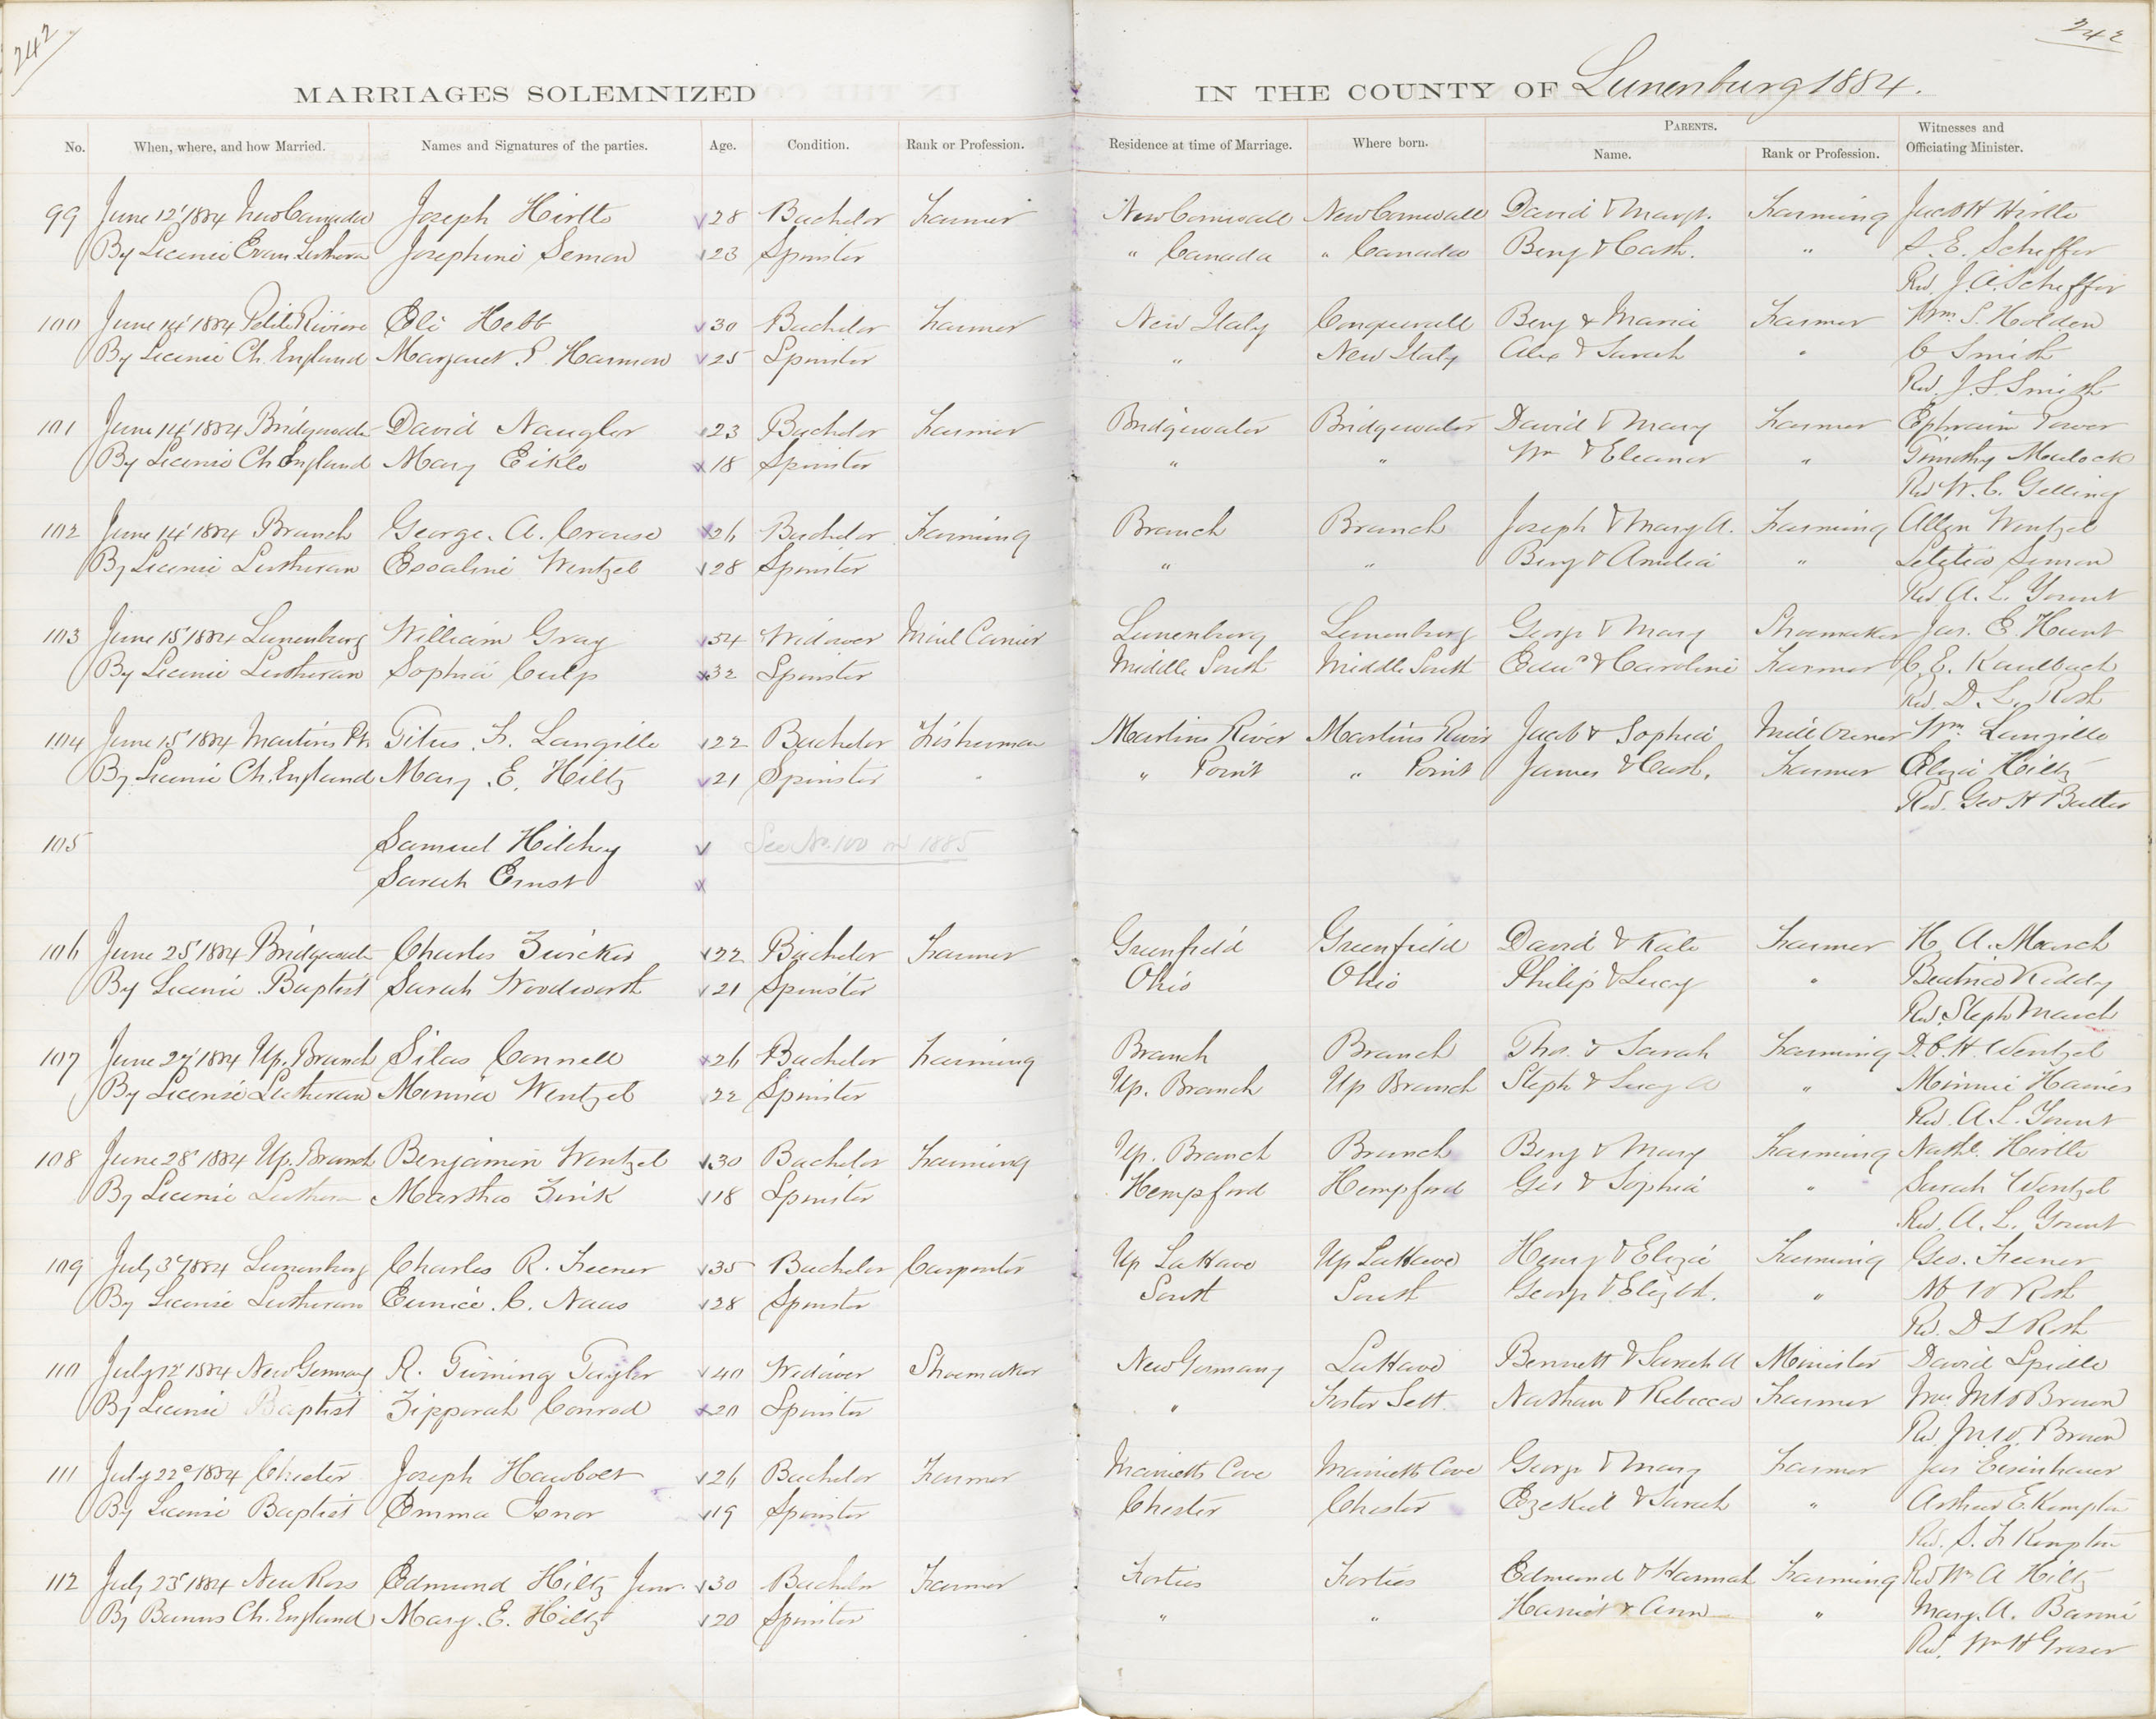 242
242
MARRIAGES SOLEMNIZED IN THE COUNTY OF Lunenburg 1884.
No. When, where, and how Married. Names and Signatures of the parties. Age. Condition. Rank or Profession. Residence at time of Marriage. Where born. PARENTS. Name. Rank or Profession. Witnesses and Officiating Minister.
99 June 12' 1884 New Canada Joseph Hirtle 28 Bachelor Farmer New Cornwall New Cornwall David & Margt. Farming Jacob H Hirtle
By Licence Evan. Lutheran Josephine Semon 23 Spinster " Canada " Canada Benj & Cath. " S. E. Scheffer
Rev. J. A. Scheffer
100 June 14' 1884 Petite Riviere Eli Hebb 30 Bachelor Farmer New Italy Conquerall Benj & Maria Farmer Wm. S. Holden
By Licence Ch. England Margaret P. Harmon 25 Spinster " New Italy Alex & Sarah " C Smith
Rev. J. S. Smith
101 June 14' 1884 Bridgewater David Naugler 23 Bachelor Farmer Bridgewater Bridgewater David & Mary Farmer Ephraim Power
By Licence Ch England Mary Eikle 18 Spinster " " Wm & Eleanor " Timothy Mulock
Rev W. C. Gelling
102 June 14' 1884 Branch George. A. Crouse 26 Bachelor Farming Branch Branch Joseph & Mary A. Farming Allen Wentzel
By Licence Lutheran Evvaline Wentzel 28 Spinster " " Benj & Amelia " Letitia Simon
Rev. A. L. Yount
103 June 15' 1884 Lunenburg William Gray 54 Widower Mail Carrier Lunenburg Lunenburg George & Mary Shoemaker Jas. E. Hunt
By Licence Lutheran Sophia Culp 32 Spinster Middle South Middle South Edwd & Caroline Farmer C. E. Kaulbach
Rev. D. L. Roth
104 June 15' 1884 Martins Pt. Titus. F. Langille 22 Bachelor Fisherman Martins River Martins River Jacob & Sophia Mill Owner Wm. Langille
By Licence Ch. England Mary. E. Hiltz 21 Spinster " Point " Point James & Cath. Farmer Eliza Hiltz
Rev. Geo H Butler
105 Samuel Hilchey See No. 100 in 1885
Sarah Ernst
106 June 25' 1884 Bridgewater Charles Zwicker 22 Bachelor Farmer Greenfield Greenfield David & Kate Farmer H. A. March
By Licence Baptist Sarah Woodworth 21 Spinster Ohio Ohio Philip & Lucy " Beatrice Keddy
Rev. Steph March
107 June 27' 1884 Up. Branch Silas Connell 26 Bachelor Farming Branch Branch Thos. & Sarah Farming D. C. H. Wentzel
By Licence Lutheran Minnie Wentzel 22 Spinster Up. Branch Up Branch Steph & Lucy A " Minnie Haines
Rev. A. L. Yount
108 June 28' 1884 Up. Branch Benjamin Wentzel 30 Bachelor Farming Up. Branch Branch Benj & Mary Farming Nathl. Hirtle
By Licence Lutheran Martha Zink 18 Spinster Hempford Hempford Geo & Sophia " Sarah Wentzel
Rev. A. L. Yount
109 July 3d 1884 Lunenburg Charles R. Feener 35 Bachelor Carpenter Up LaHave Up LaHave Henry & Eliza Farming Geo. Feener
By Licence Lutheran Eunice. C. Naas 28 Spinster South South George & Elizbth. " W Roth
Rev. D L Roth
110 July 12' 1884 New Germany R. Twining Taylor 40 Widower Shoemaker New Germany LaHave Bennett & Sarah A Minister David Spidle
By Licence Baptist Zipporah Conrod 20 Spinster " Foster Sett. Nathan & Rebecca Farmer Mrs. M W Brown
Rev. J W. Brown
111 July 22d 1884 Chester Joseph Hawbolt 26 Bachelor Farmer Marriotts Cove Marriotts Cove George & Mary Farmer Jas Eisenhauer
By Licence Baptist Emma Isnor 19 Spinster Chester Chester Ezekiel & Sarah " Arthur E. Kempton
Rev. S. F. Kempton
112 July 23' 1884 New Ross Edmund Hiltz Junr. 30 Bachelor Farmer Forties Forties Edmund & Hannah Farming Rev Wm A Hiltz
By Banns Ch. England Mary. E. Hiltz 20 Spinster " " Harriet & Ann " Mary. A.
Rev. Wm H Groser